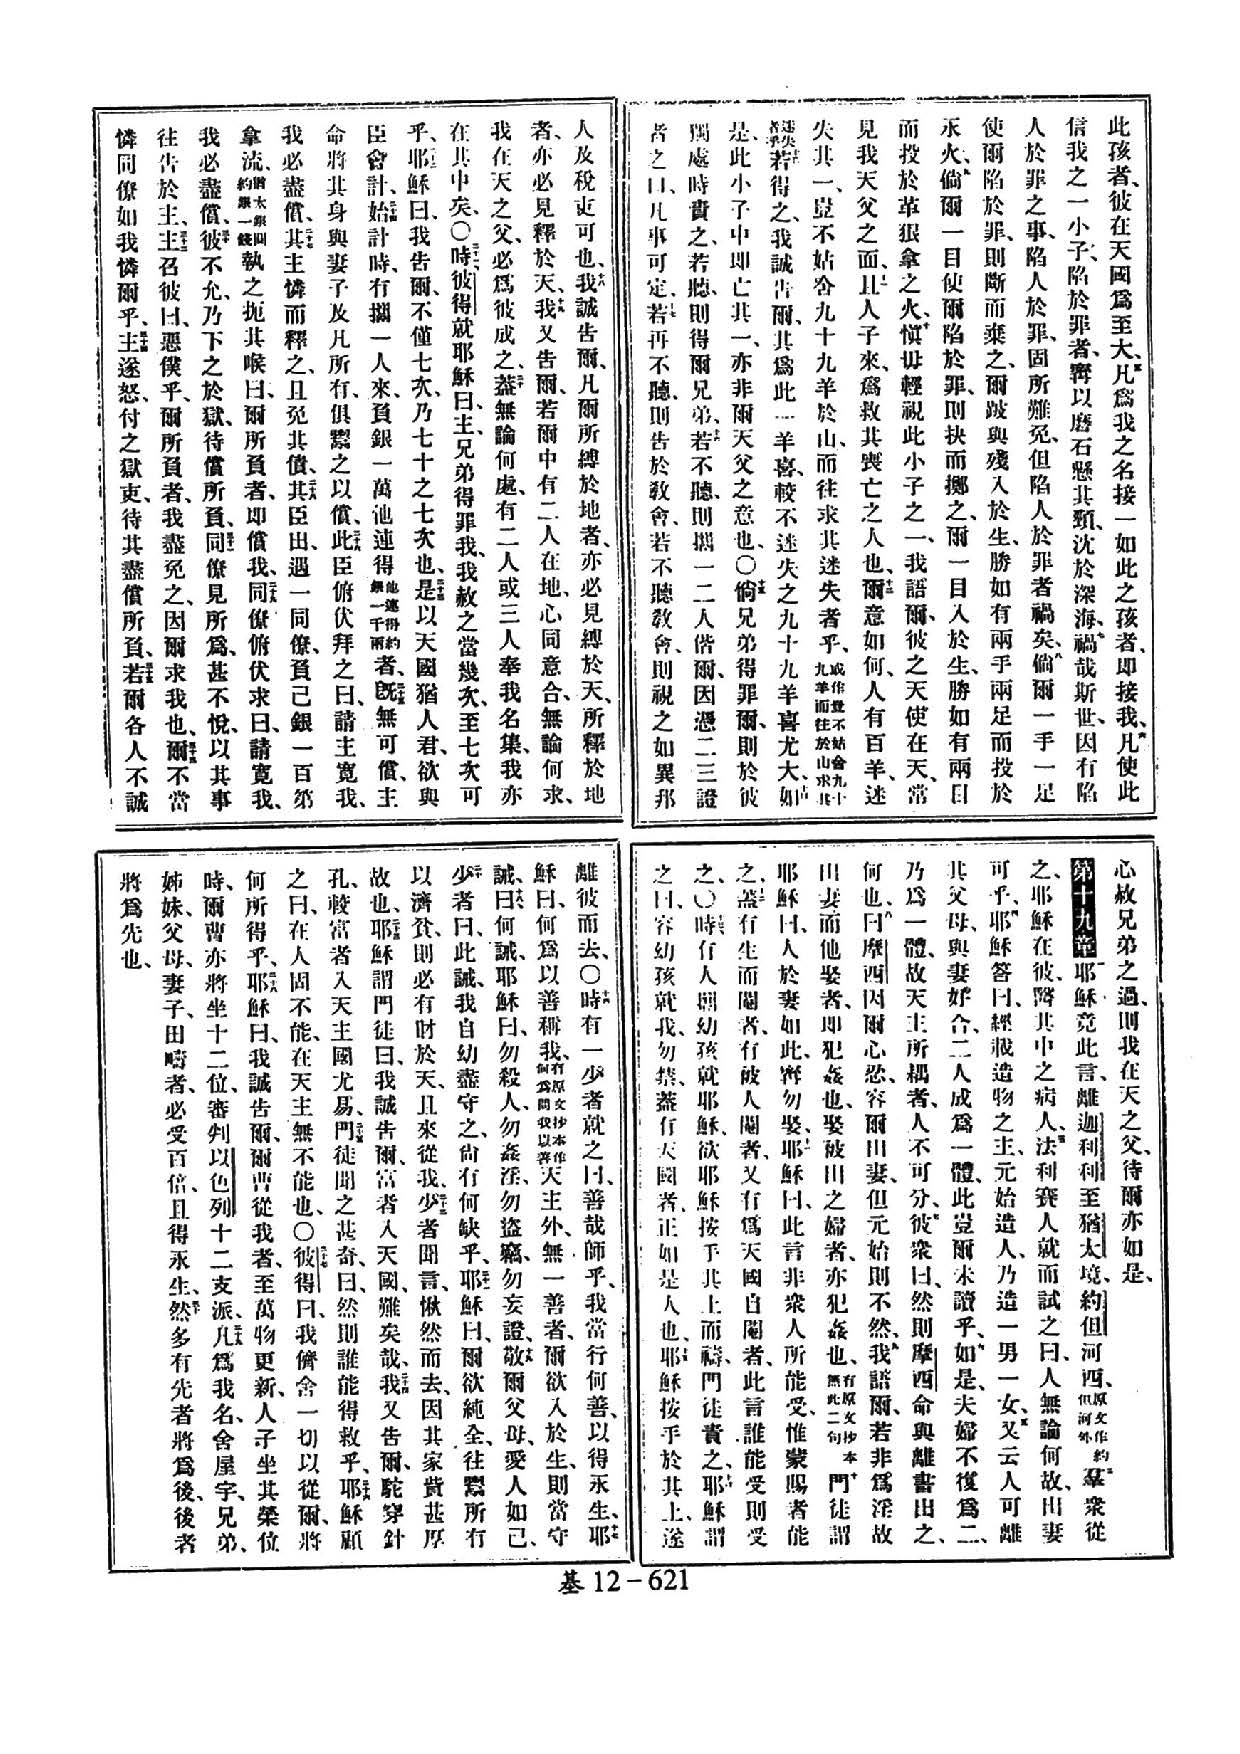 此孩者、彼在天國爲至大、五凡爲我之名接一如此之孩者、即接我、六凡使此
信我之一小子、陷於罪者、寧以磨石懸其頸、沈於深海、七禍哉斯世、因有陷
人於罪之事、陷人於罪、固所難免、但陷人於罪者禍矣、八倘爾一手一足
使爾陷於罪、則斷而棄之、爾跛與殘入於生、勝如有兩手兩足而投於
永火、九倘爾一目使爾陷於罪、則抉而擲之、爾一目入於生、勝如有兩目
而投於革狠拿之火、十愼毋輕視此小子之一、我語爾、彼之天使在天、常
見我天父之面、十一且人子來、爲救其喪亡之人也、十二爾意如何、人有百羊、迷
失其一、豈不姑舍九十九羊於山、而往求其迷失者乎、或作豈不姑舍九十九羊而往於山求其
迷失者乎十三若得之、我誠吿爾、其爲此一羊喜、較不迷失之九十九羊喜尤大、十四如
是、此小子中即亡其一、亦非爾天父之意也、〇十五倘兄弟得罪爾、則於彼
獨處時責之、若聽、則得爾兄弟、十六若不聽、則攜一二人偕爾、因憑二三證
者之口、凡事可定、十七若再不聽、則吿於敎會、若不聽敎會、則視之如異邦
人及稅吏可也、十八我誠吿爾、凡爾所縛於地者、亦必見縛於天、所釋於地
者、亦必見釋於天、十九我又吿爾、若爾中有二人在地、心同意合、無論何求、
我在天之父、必爲彼成之、二十蓋無論何處、有二人或三人奉我名集、我亦
在其中矣、〇二十一時彼得就耶穌曰、主、兄弟得罪我、我赦之當幾次、至七次可
乎、二十二耶穌曰、我吿爾、不僅七次、乃七十之七次也、二十三是以天國猶人君、欲與
臣會計、二十四始計時、有攜一人來、負銀一萬他連得他連得約銀一千兩者、二十五旣無可償、主
命將其身與妻子及凡所有、俱鬻之以償、二十六此臣俯伏拜之曰、請主寬我、
我必盡償、二十七其主憐而釋之、且免其債、二十八其臣出、遇一同僚、負己銀一百第
拿流、猶太銀圓約銀一錢執之扼其喉曰、爾所負者、即償我、二十九同僚俯伏求曰、請寬我、
我必盡償、三十彼不允、乃下之於獄、待償所負、三十一同僚見所爲、甚不悅、以其事
往吿於主、三十二主召彼曰、惡僕乎、爾所負者、我盡免之、因爾求我也、三十三爾不當
憐同僚如我憐爾乎、三十四主遂怒、付之獄吏、待其盡償所負、三十五若爾各人不誠
心赦兄弟之過、則我在天之父、待爾亦如是、
第十九章一耶穌竟此言、離迦利利、至猶太境、約但河西、原文作約但河外二羣衆從
之、耶穌在彼、醫其中之病人、三法利賽人就而試之曰、人無論何故、出妻
可乎、四耶穌答曰、經載造物之主、元始造人、乃造一男一女、五又云人可離
其父母、與妻好合、二人成爲一體、此豈爾未讀乎、六如是、夫婦不復爲二、
乃爲一體、故天主所耦者、人不可分、七彼衆曰、然則摩西命與離書出之、
何也、八曰、摩西因爾心忍、容爾出妻、但元始則不然、九我語爾、若非爲淫故
出妻而他娶者、即犯姦也、娶被出之婦者、亦犯姦也、有原文抄本無此二句十門徒謂
耶穌曰、人於妻如此、寧勿娶、十一耶穌曰、此言非衆人所能受、惟蒙賜者能
之、十二蓋有生而閹者、有被人閹者、又有爲天國自閹者、此言誰能受則受
之、〇十三時有人攜幼孩就耶穌、欲耶穌按手其上而禱、門徒責之、十四耶穌謂
之曰、容幼孩就我、勿禁、蓋有天國者、正如是人也、十五耶穌按手於其上、遂
離彼而去、〇十六時有一少者就之曰、善哉師乎、我當行何善、以得永生、十七耶
穌曰、何爲以善稱我、有原文抄本作何爲問我以善天主外、無一善者、爾欲入於生、則當守
誡、十八曰何誡、耶穌曰、勿殺人、勿姦淫、勿盜竊、勿妄證、十九敬爾父母、愛人如己、
二十少者曰、此誡、我自幼盡守之、尙有何缺乎、二十一耶穌曰、爾欲純全、往鬻所有
以濟貧、則必有財於天、且來從我、二十二少者聞言、愀然而去、因其家貲甚厚
故也、二十三耶穌謂門徒曰、我誠吿爾、富者入天國、難矣哉、二十四我又吿爾、駝穿針
孔、較富者入天主國尤易、二十五門徒聞之甚奇曰、然則誰能得救乎、二十六耶穌顧
之曰、在人固不能、在天主無不能也、〇二十七彼得曰、我儕舍一切以從爾、將
何所得乎、二十八耶穌曰、我誠吿爾、爾曹從我者、至萬物更新、人子坐其榮位
時、爾曹亦將坐十二位、審判以色列十二支派、二十九凡爲我名、舍屋宇、兄弟、
姊妹、父母、妻子、田疇者、必受百倍、且得永生、三十然多有先者將爲後、後者
將爲先也、
基12-621